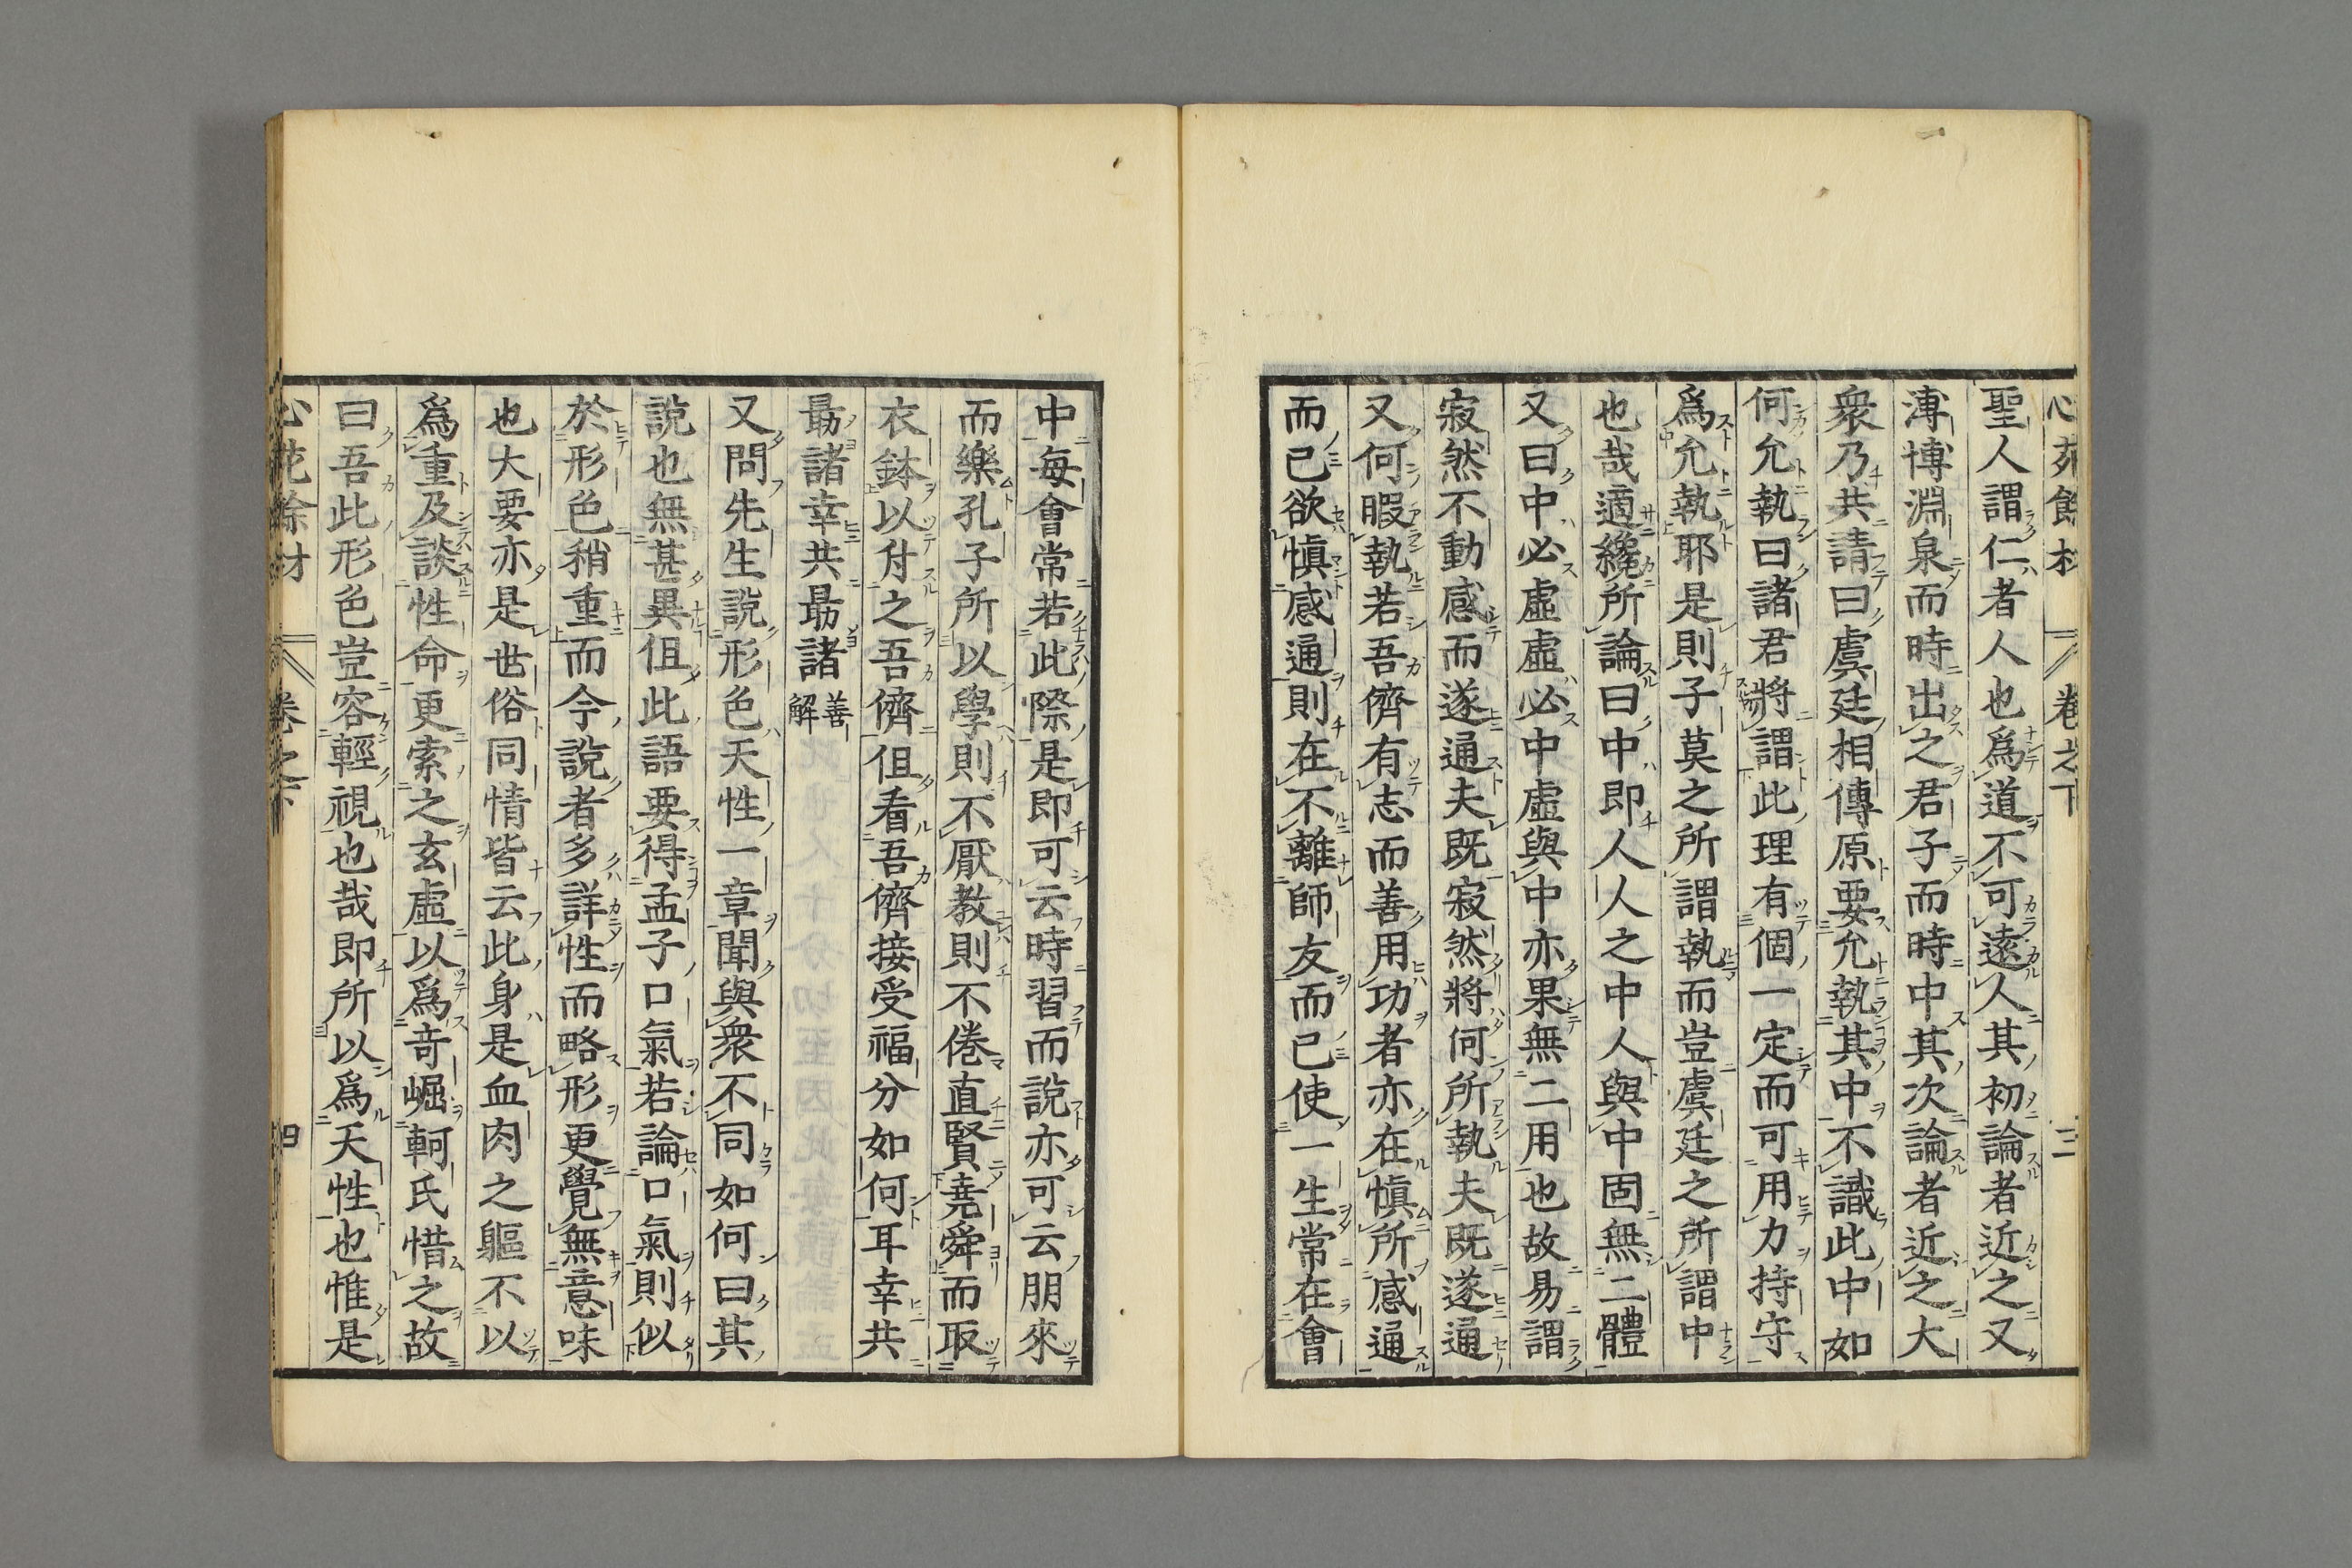 聖人謂仁者人也爲道不可遠人其初論者近之又
溥博淵泉而時出之君子而時中其次論者近之大
衆乃共請曰虞廷相傳原要允執其中不識此中如
何允執曰諸君將謂此理有個一定而可用力持守
爲允執耶是則子莫之所謂執而豈虞廷之所謂中
也哉適纔所論曰中即人人之中人與中固無二體
又曰中必虛虛必中虛與中亦果無二用也故易謂
寂然不動感而遂通夫既寂然將何所執夫既遂通
又何暇執若吾儕有志而善用功者亦在愼所感通
而已欲愼感通則在不離師友而已使一生常在會
中每會常若此際是即可云時習而說亦可云朋來
而樂孔子所以學則不厭教則不倦直賢堯舜而取
衣鉢以付之吾儕但看吾儕接受福分如何耳幸共
最諸幸共最諸善解
又問先生說形色天性一章聞與衆不同如何曰其
說也無甚異但此語要得孟子口氣若論口氣則似
於形色稍重而今說者多詳性而略形更覺無意味
也大要亦是世俗同情皆云此身是血肉之軀不以
爲重及談性命更索之玄虛以爲奇崛軻氏惜之故
曰吾此形色豈容輕視也哉即所以爲天性也惟是
卷之下
四